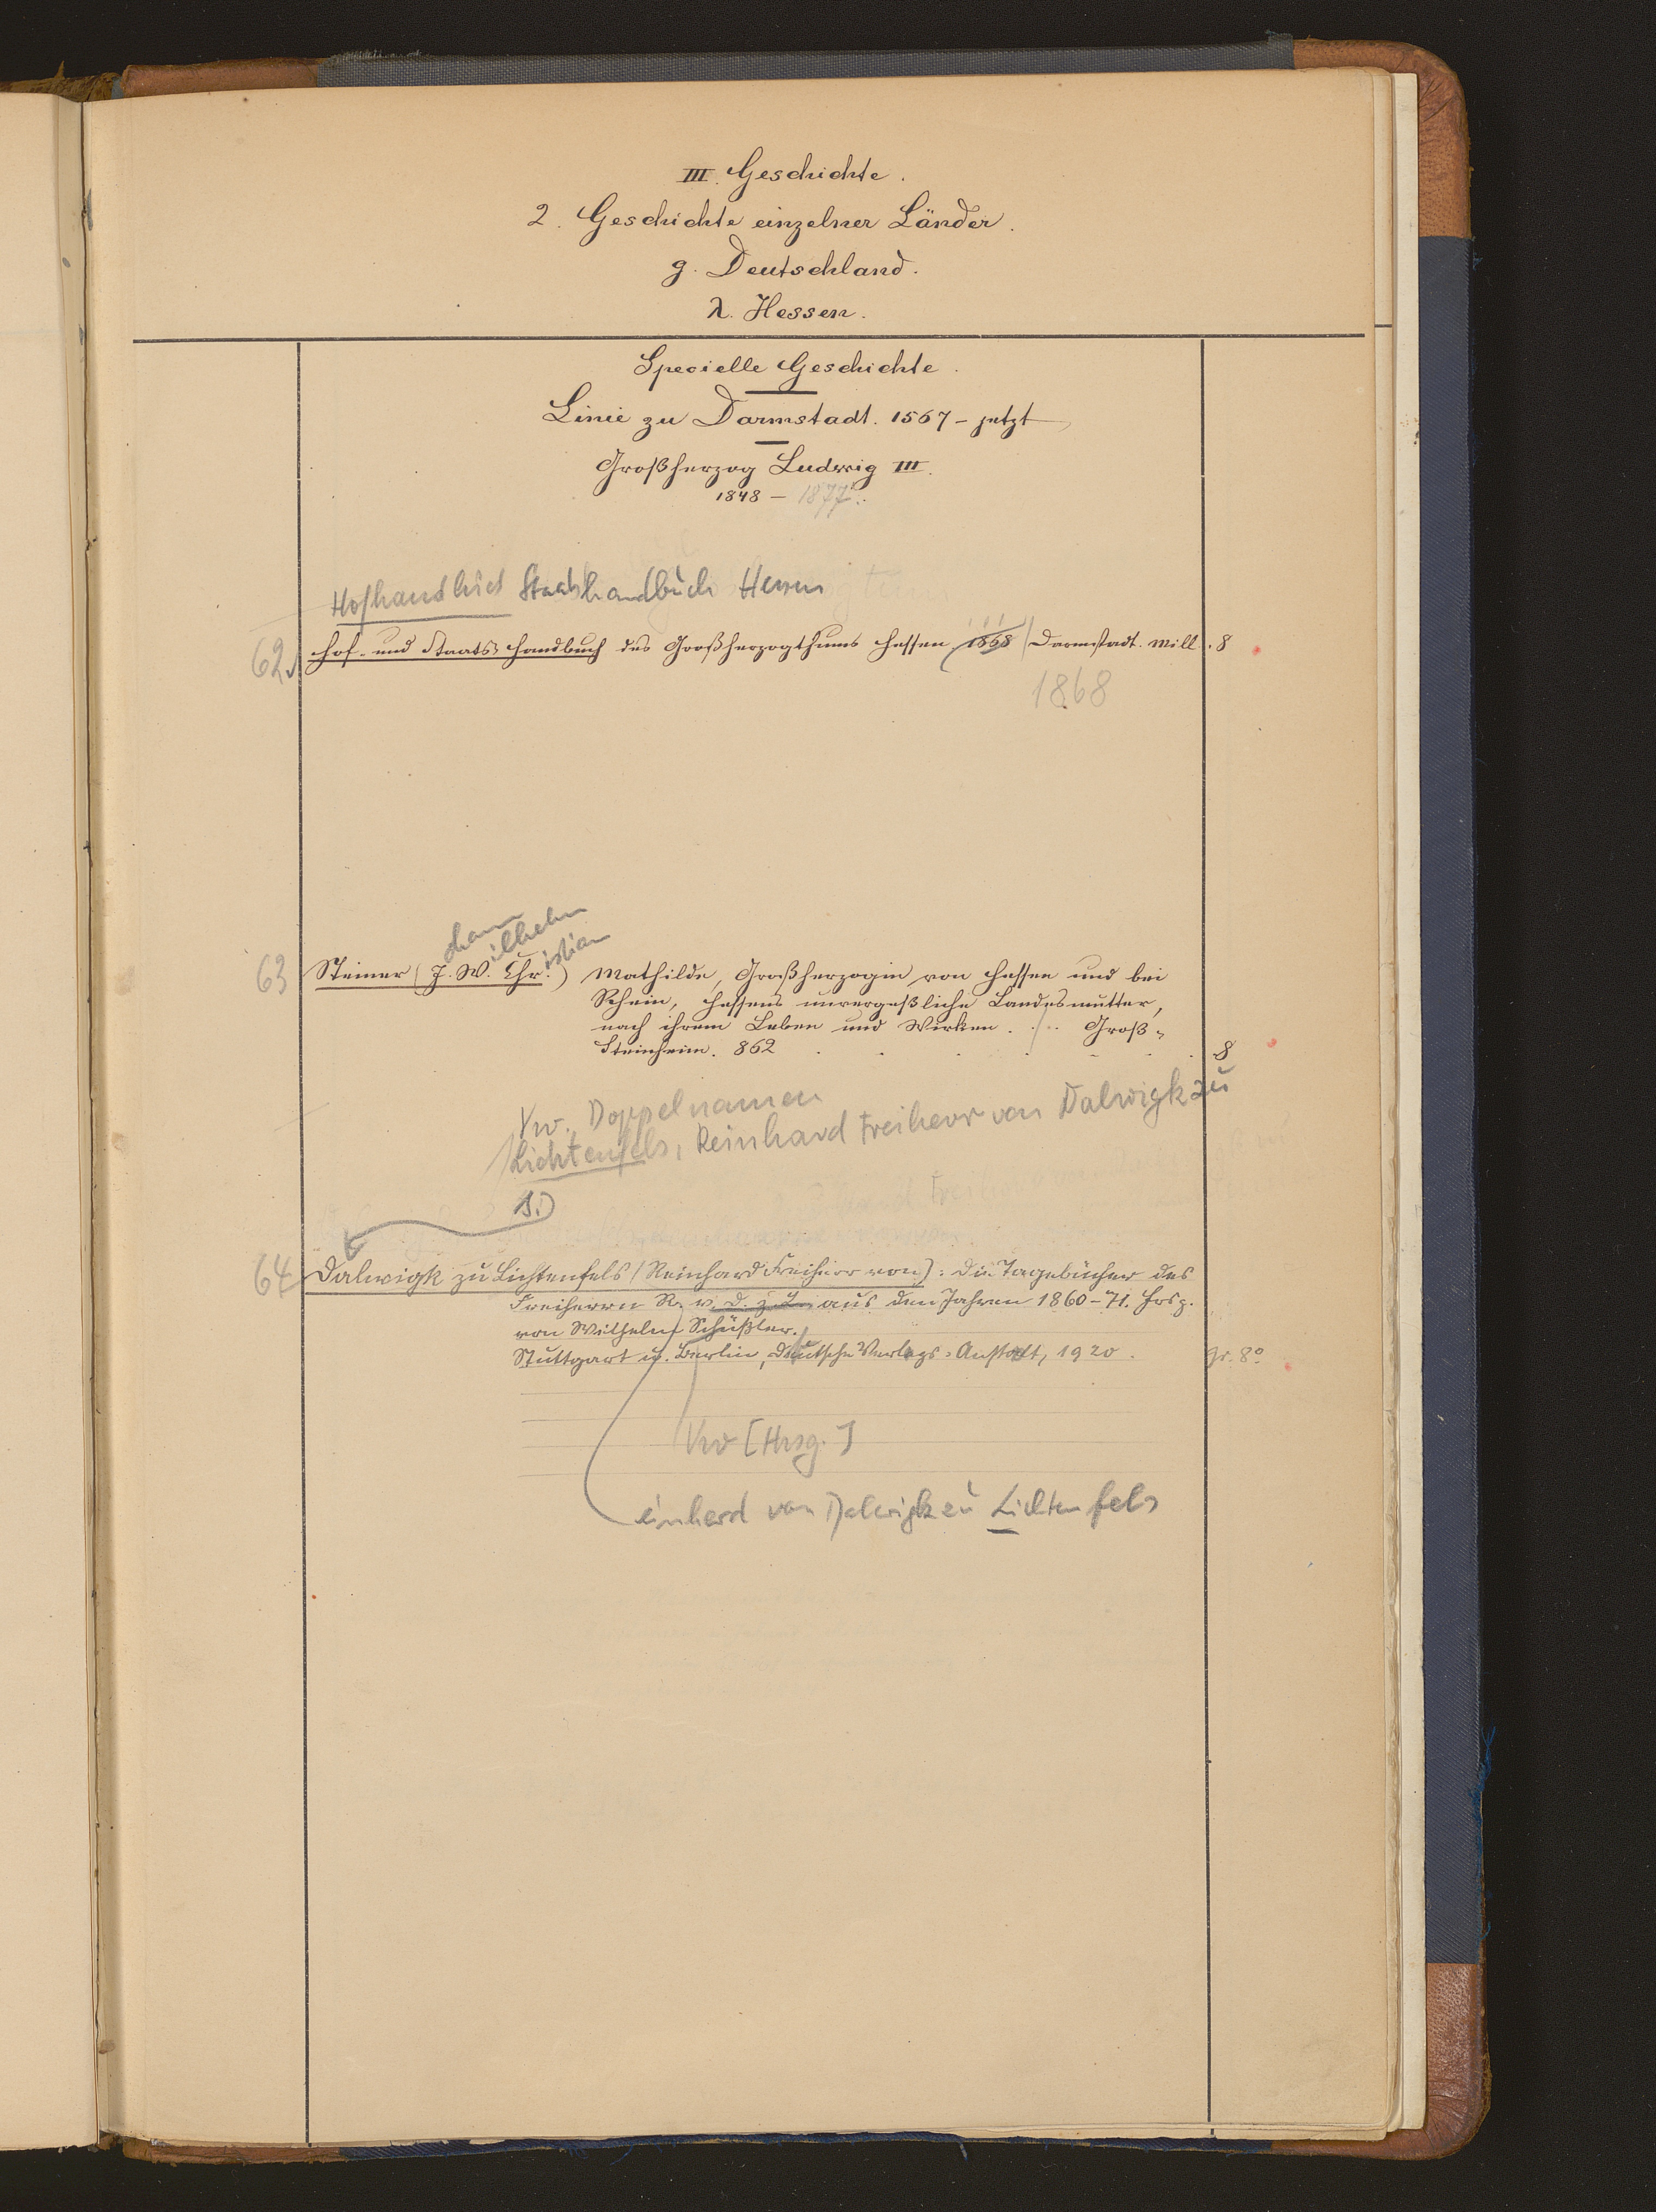 III. Geschichte.
2. Geschichte einzelner Länder.
g. Deutschland.
λ. Hessen.
Specielle Geschichte.
Linie zu Darmstadt. 1567 - jetzt
Großherzog Ludwig III.
1848 - 1877.
Staatshandbuch Hessen
62. Hof- und Staats-Handbuch des Großherzogthums Hessen 1868 Darmstadt. Mill. 8
1868
ohann
ilhelm
istian
63 Steiner (J. W. Chr.) Mathilde, Großherzogin von Hessen und bei
Rhein, Hessens unvergeßliche Landesmutter,
nach ihrem Leben und Wirken. ... Groß-
Steinheim. 862 . . . . . . 8
Vw. Doppelnamen
Lichtenfels, Reinhard Freiherr von Dalwigk zu
64 Dalwigk zu Lichtenfels (Reinhard Freiherr von): Die Tagebücher des
Freiherrn R. v. D. z. L. aus den Jahren 1860-71. Hrsg.
von Wilhelm Schüßler.
Stuttgart u. Berlin, Deutsche Verlags-Anstalt, 1920. gr. 8°
Vw [Hrsg.]
einhard von Dalwigk zu Lichtenfels